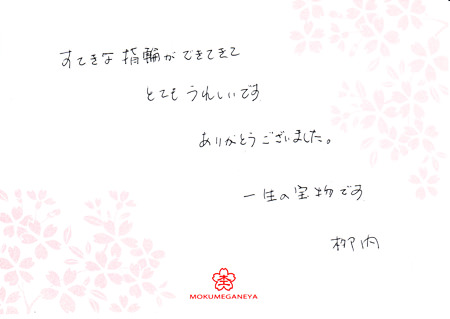 すてきな指輪ができてきて
とてもうれしいです
ありがとうございました。
一生の宝物です
柳内
MOKUMEGANEYA